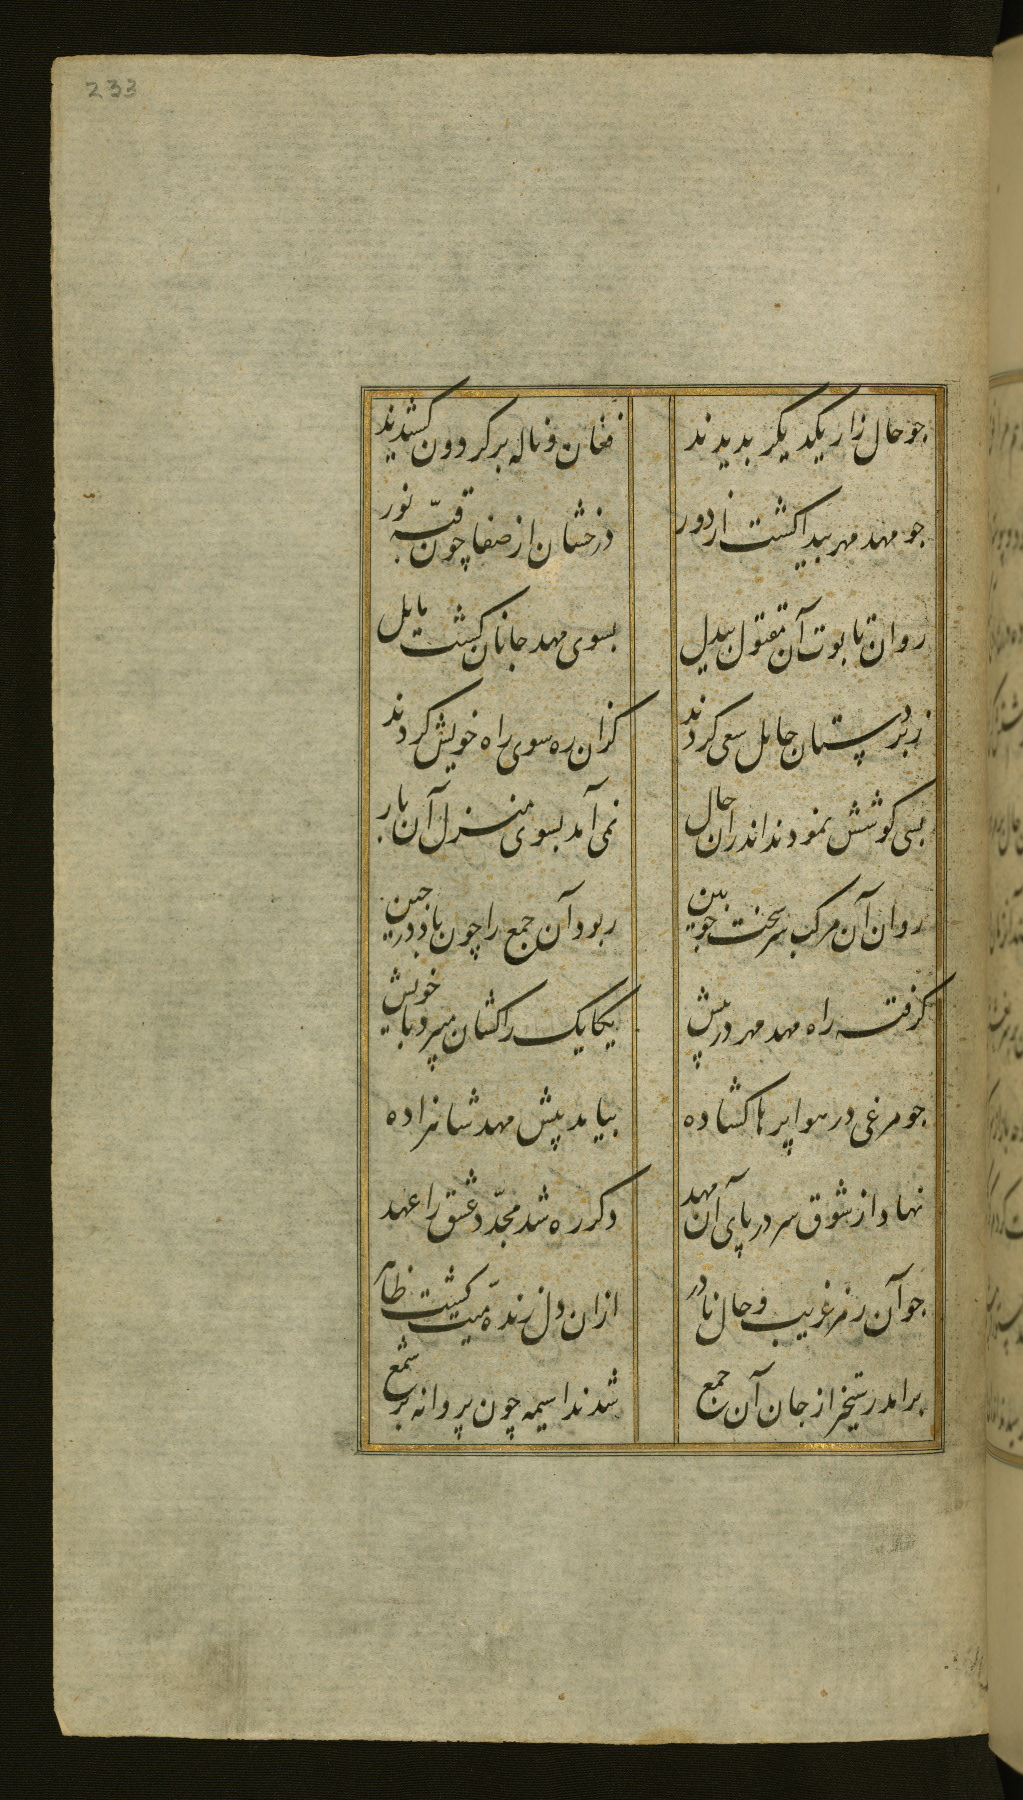 233
جو حال زار یکدیگر بدیدند فغان و ناله بر کردون کشیدند
جو مهد مهر پیدا کشت از دور درخشان از صفا چون قبّه نور
روان تابوت آن مقتول بیدل بسوی مهد جانان کشت مایل
ز بر دستان حامل سعی کردند کزان ره سوی راه خویش کردند
بسی کوشش نمودند اندران حال نمی آمد بسوی منزل آن بار
روان آن مرکب سرسخت جوبین ربود آن جمع را چون باد در
کرفته راه مهد مهر در پیش یکایک را کشان میبرد با خویش
جو مرغی در هوا پرها کشاده بیامد پیش مهد شاهزاده
نهاد از شوق سر در پای آن مهد دکر ره شد مجدّد عشق را عهد
جو آن رمز غریب و حال نادر ازان دل زنده میّت کشت ظاهر
برامد رستخیز از جان آن جمع شدند اسیمه چون پروانه بر شمع